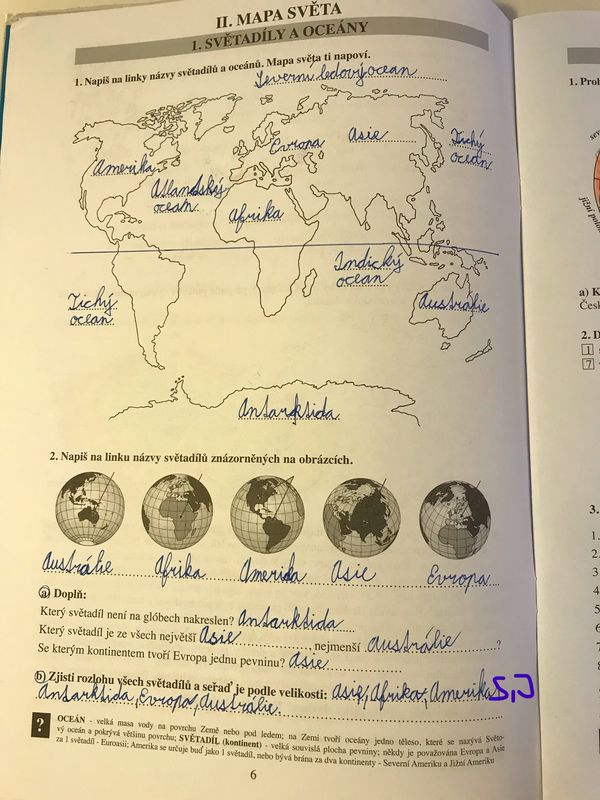 II. MAPA SVĚTA
1. SVĚTADÍLY A OCEÁNY
1. Napiš na linky názvy světadílů a oceánů. Mapa světa ti napoví.
Severní ledový ocean
Amerika
Evropa
Asie
Tichý
ocean
Atlandský
ocean
Afrika
Indický
ocean
Tichý
ocean
Austrálie
Antarktida
2. Napiš na linku názvy světadílů znázorněných na obrázcích.
Austrálie Afrika Amerika Asie Evropa
a) Doplň:
Který světadíl není na glóbech nakreslen? Antarktida
Který světadíl je ze všech největší Asie, nejmenší Austrálie?
Se kterým kontinentem tvoří Evropa jednu pevninu? Asie
b) Zjisti rozlohu všech světadílů a seřaď je podle velikosti: Asie, Afrika, Amerika S, J
Antarktida, Evropa, Austrálie.
? OCEÁN - velká masa vody na povrchu Země nebo pod ledem; na Zemi tvoří oceány jedno těleso, které se nazývá Světo-
vý oceán a pokrývá většinu povrchu; SVĚTADÍL (kontinent) - velká souvislá plocha pevniny; někdy je považována Evropa a Asie
za 1 světadíl - Euroasii; Amerika se určuje buď jako 1 světadíl, nebo bývá brána za dva kontinenty - Severní Ameriku a Jižní Ameriku
6
1. Prol
jižní
a) K
Česk
2. D
1
7
3.
1.
2.
3
4
5